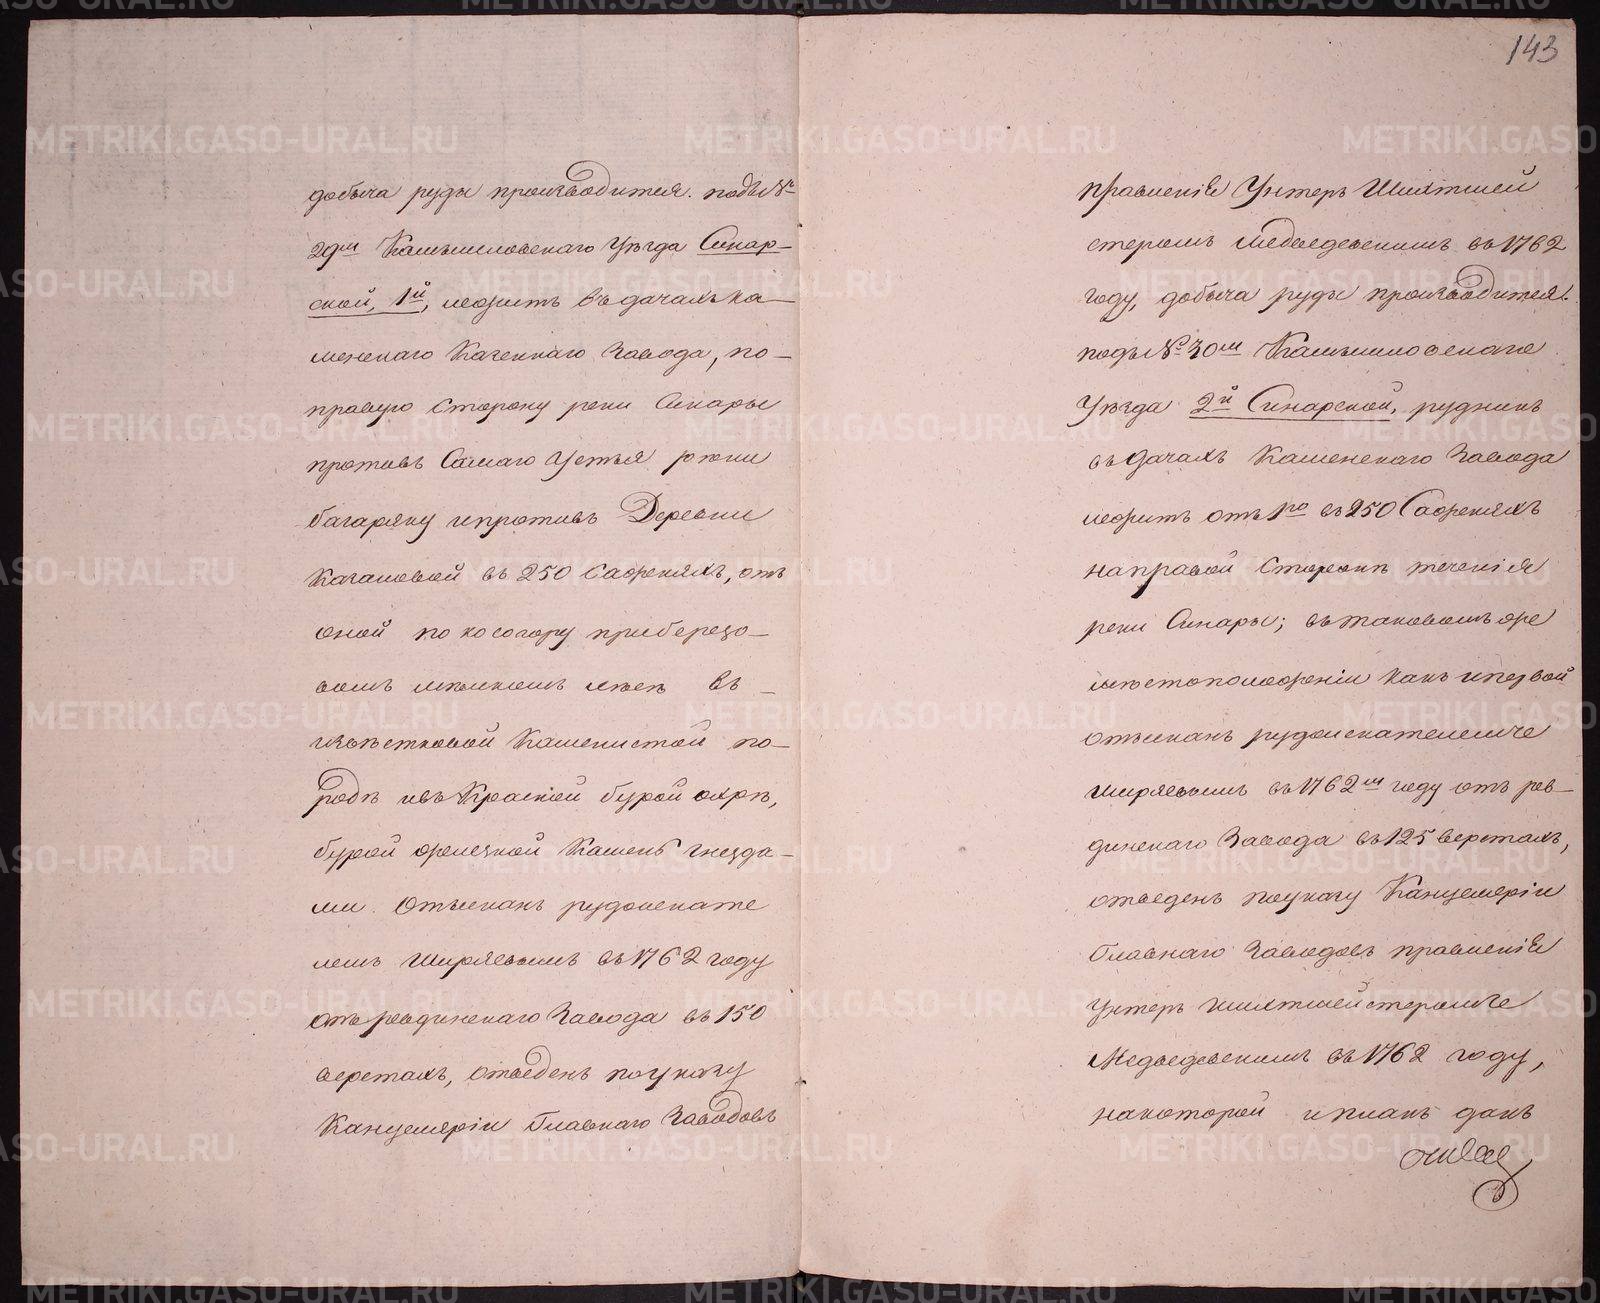 добыча руды производится. подъ №
29мъ Камышловскаго Уѣзда Синар-
ской, 1й, лежитъ въ дачахъ ка-
менскаго Казеннаго Завода, по-
правую Сторону реки Синары
противъ Самаго Устья рѣчки
багаряку и противъ Деревни
Кагановой въ 250 Саженяхъ, отъ
оной по косогору при березо-
вомъ мѣлкомъ лѣсѣ въ-
извѣстковой Каменистой по-
родѣ изъ Красной бурой охрѣ,
бурой желѣзной Камень гнезда-
ми. Отысканъ рудоискате
лемъ Ширяевымъ въ 1762 году
отъ ревдинскаго Завода въ 150
верстахъ, отведенъ по указу
Канцеляріи Главнаго Заводовъ
143
правленія Унтеръ Шихтмей
стеромъ Медведевскимъ въ 1762
году, добыча руды производится.
подъ № 30мъ Камышловскаго
Уѣзда 2й Синарской, рудникъ
въ дачахъ Каменскаго Завода
лежитъ отъ 1го въ 250 Саженяхъ
на правой Сторонѣ теченія
реки Синары; въ таковомъ же
мѣстоположеніи какъ и первой
отысканъ рудоискателемъ же
Ширяевымъ въ 1762мъ году отъ рев-
динскаго Завода въ 125 верстахъ,
отведенъ по указу Канцеляріи
Главнаго Заводовъ правленія
Унтеръ шихтмейстеромъ же
Медведевскимъ въ 1762 году,
на которой и планъ данъ